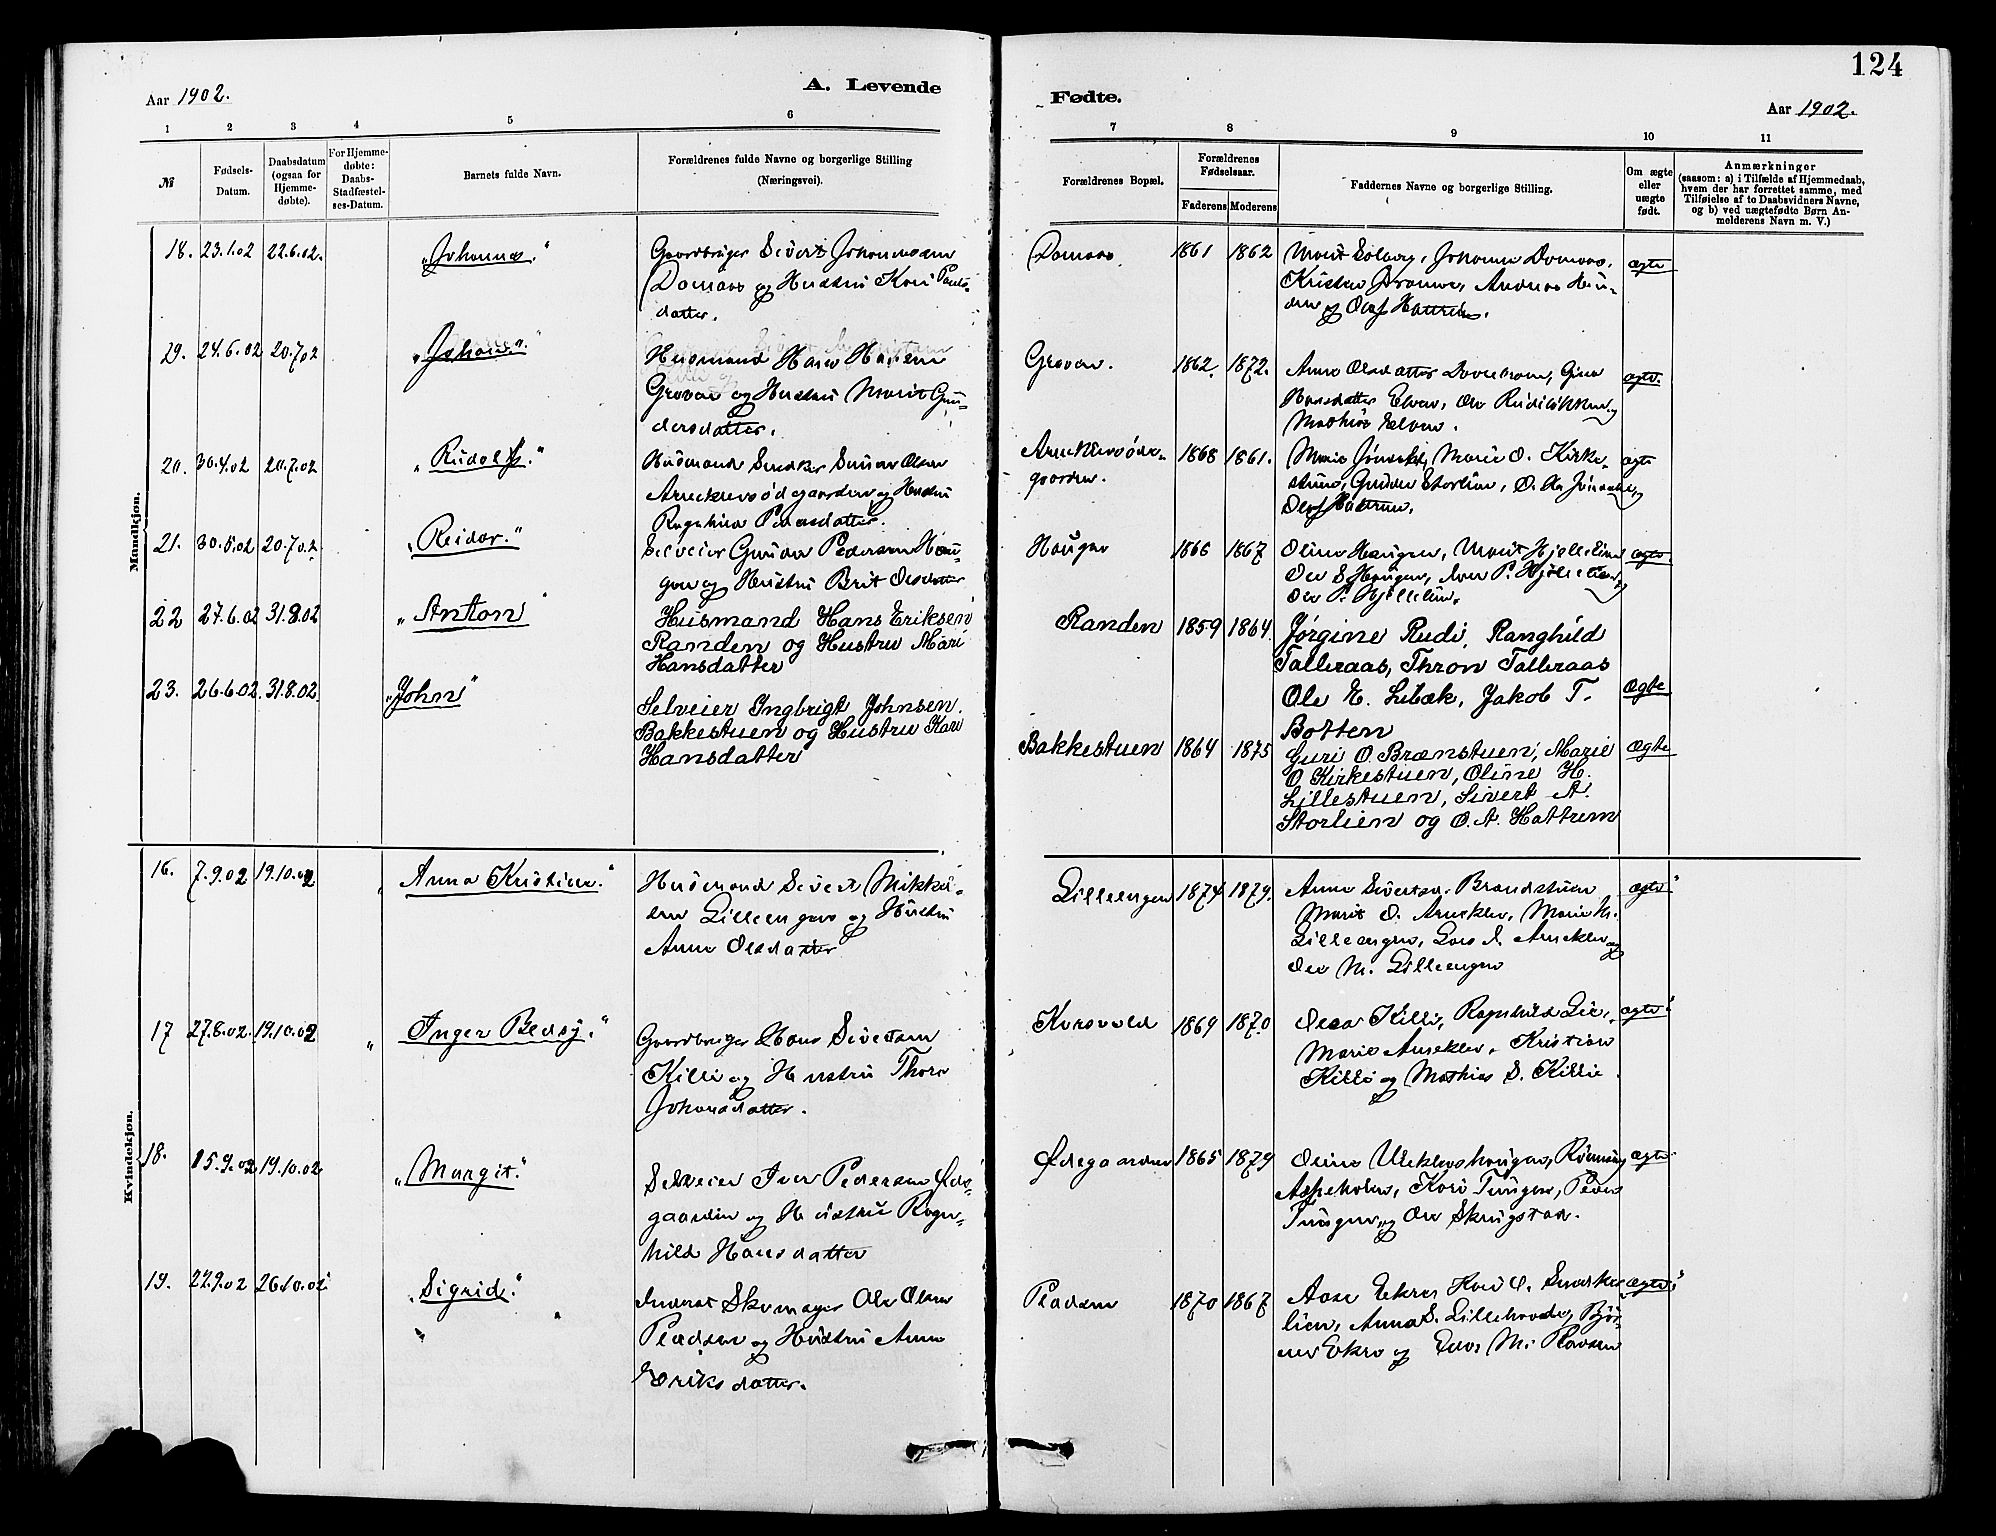 124
Aar 1902.
A. Levende
Fødte.
Aar 1902.
1 2 3 4 5 6
7 8 9 10 11
№
Fødsels-
Datum.
Daabsdatum
(ogsaa for
Hjemme-
døbte).
For Hjemme-
døbte:
Daabs-
Stadfæstel-
ses-Datum.
Barnets fulde Navn.
Forældrenes fulde Navne og borgerlige Stilling
(Næringsvei).
Forældrenes Bopæl.
Forældrenes
Fødselsaar.
Faderens Moderens
Faddernes Navne og borgerlige Stilling.
Om ægte
eller
uægte
født.
Anmærkninger
(saasom: a) i Tilfælde af Hjemmedaab,
hvem der har forrettet samme, med
Tilføielse af to Daabsvidners Navne,
og b) ved uægtefødte Børn An-
melderens Navn m. V.)
Mandkjøn.
18. 23.1.02 22.6.02. „Johannes."
Gaardbruger Sivert Johannesen
Domaas og Hustru Kari Pauls-
datter.
Domaas 1861 1862
Marit Solberg, Johanne Domaas,
Kristen Andreas
og Olaf Hattrem.
ægte
29. 24.6.02 20.7.02 „Johan."
Husmand Hans Hansen
Grovan og Hustru Marit Gun-
dersdatter.
Grovan. 1862. 1872.
Anne Olsdatter Gina
Hansdatter Elven, Ole Rudiløkken og
Mathias Elven.
ægte.
20. 30.4.02 20.7.02 „Rudolf."
Husmand Snedker Gunder Olsen
Arneklevsødegaarden og Hustru
Ragnhild Pedersdatter.
Arneklevsøde-
gaarden.
1868 1861.
Marie Marie O. Kirke-
stuen, Storlien,
Olaf Hattrem.
ægte
21. 30.5.02 20.7.02 „Reidar."
Selveier Gunder Pedersen Hau-
gen og Hustru Brit Olsdatter
Haugen 1866 1867
Oline Haugen, Marit Hjellelien
Ole S. Haugen, Iver P. Hjellelien,
Ole P. Hjellelien.
ægte.
22 27.6.02 31.8.02 „Anton"
Husmand Hans Eriksen
Randen og Hustru Mari
Hansdatter
Randen 1859 1864.
Jørgine Rudi, Ranghild
Talleraas, Thron Talleraas
Ole E. Libæk, Jakob T.
Botten
Ægte
23. 26.6.02. 31.8.02. „John"
Selveier Ingbrigt Johnsen.
Bakkestuen og Hustru Kari
Hansdatter
Bakkestuen 1864 1875
Guri O. Brænstuen, Marie
O. Kirkestuen, Oline H.
Lillestuen, Sivert A.
Storlien og O. A. Hattrem
Ægte
Kvindekjøn.
16. 7.9.02 19.10.02 „Anna Kristine."
Husmand Sivert Mikkel-
sen Lilleengen og Hustru
Anne Olsdatter
Lilleengen 1874 1879.
Anne Sivertsd. Brandstuen
Marit O. Arneklev, Marie M.
Lilleengen, Lars I. Arneklev og
Ole M. Lilleengen
ægte"
17 27.8.02 19.10.02 „Inger Bedsy."
Gaardbruger Hans Sivertsen
Killi og Hustru Thora
Johansdatter.
Korsvold 1869 1870
Killi, Ragnhild Lie,
Marie Arneklev, Kristian
Killi og Mathias S. Killie.
ægte"
18. 15.9.02 19.10.02 „Margit."
Selveier Iver Pedersen Øde-
gaarden og Hustru Ragn-
hild Hansdatter
Ødegaarden 1865 1879
Oline Rønnaug
Aspeholen, Kari Tungen, Peder
Tungen, og Ole Skrugstad.
ægte
19. 22.9.02 26.10.02 „Sigrid."
Inderst Skomager Ole Olsen
Pladsen og Hustru Anne
Eriksdatter.
Pladsen 1870 1867
Aase Ekre, Kari O. Snedker-
lien, Anna S. Lillehovde, Bjør-
ner Ekre og M. Pladsen
ægte"